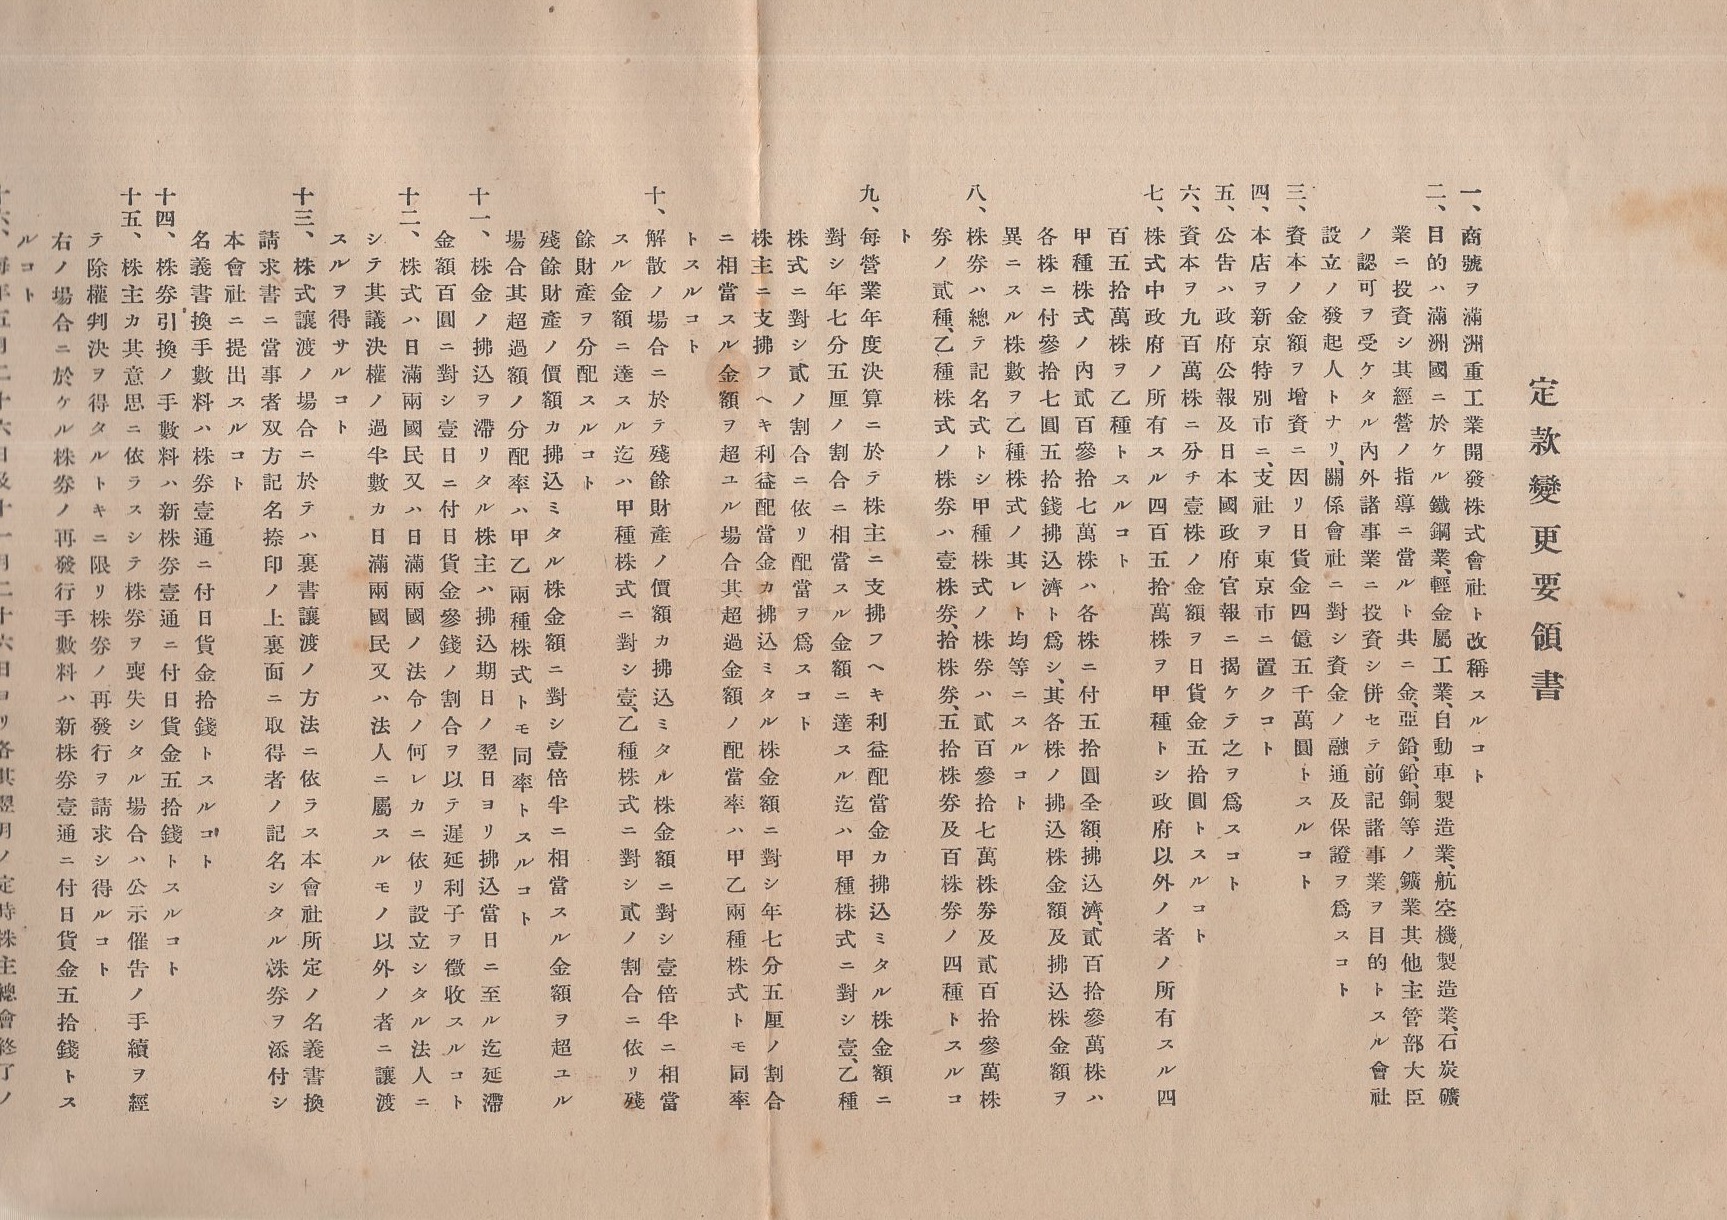 定款變更要領書
一、商號ヲ滿洲重工業開發株式會社ト改稱スルコト
二、目的ハ滿洲國ニ於ケル鐵鋼業、輕金屬工業、自動車製造業、航空機製造業、石炭礦
業ニ投資シ其經營ノ指導ニ當ルト共ニ金、亞鉛、鉛、銅等ノ鑛業其他主管部大臣
ノ認可ヲ受ケタル內外諸事業ニ投資シ併セテ前記諸事業ヲ目的トスル會社
設立ノ發起人トナリ、關係會社ニ對シ資金ノ融通及保證ヲ爲スコト
三、資本ノ金額ヲ增資ニ因リ日貨金四億五千萬圓トスルコト
四、本店ヲ新京特別市ニ、支社ヲ東京市ニ置クコト
五、公告ハ政府公報及日本國政府官報ニ揭ケテ之ヲ爲スコト
六、資本ヲ九百萬株ニ分チ壹株ノ金額ヲ日貨金五拾圓トスルコト
七、株式中政府ノ所有スル四百五拾萬株ヲ甲種トシ政府以外ノ者ノ所有スル四
百五拾萬株ヲ乙種トスルコト
甲種株式ノ內貳百參拾七萬株ハ各株ニ付五拾圓全額拂込濟、貳百拾參萬株ハ
各株ニ付參拾七圓五拾錢拂込濟ト爲シ、其各株ノ拂込株金額及拂込株金額ヲ
異ニスル株數ヲ乙種株式ノ其レト均等ニスルコト
八、株券ハ總テ記名式トシ甲種株式ノ株券ハ貳百參拾七萬株券及貳百拾參萬株
券ノ貳種、乙種株式ノ株券ハ壹株券、拾株券、五拾株券及百株券ノ四種トスルコ
ト
九、每營業年度決算ニ於テ株主ニ支拂フヘキ利益配當金カ拂込ミタル株金額ニ
對シ年七分五厘ノ割合ニ相當スル金額ニ達スル迄ハ甲種株式ニ對シ壹、乙種
株式ニ對シ貳ノ割合ニ依リ配當ヲ爲スコト
株主ニ支拂フヘキ利益配當金カ拂込ミタル株金額ニ對シ年七分五厘ノ割合
ニ相當スル金額ヲ超ユル場合其超過金額ノ配當率ハ甲乙兩種株式トモ同率
トスルコト
十、解散ノ場合ニ於テ殘餘財產ノ價額カ拂込ミタル株金額ニ對シ壹倍半ニ相當
スル金額ニ達スル迄ハ甲種株式ニ對シ壹、乙種株式ニ對シ貳ノ割合ニ依リ殘
餘財產ヲ分配スルコト
殘餘財產ノ價額カ拂込ミタル株金額ニ對シ壹倍半ニ相當スル金額ヲ超ユル
場合其超過額ノ分配率ハ甲乙兩種株式トモ同率トスルコト
十一、株金ノ拂込ヲ滯リタル株主ハ拂込期日ノ翌日ヨリ拂込當日ニ至ル迄延滯
金額百圓ニ對シ壹日ニ付日貨金參錢ノ割合ヲ以テ遲延利子ヲ徵收スルコト
十二、株式ハ日滿兩國民又ハ日滿兩國ノ法令ノ何レカニ依リ設立シタル法人ニ
シテ其議決權ノ過半數カ日滿兩國民又ハ法人ニ屬スルモノ以外ノ者ニ讓渡
スルヲ得サルコト
十三、株式讓渡ノ場合ニ於テハ裏書讓渡ノ方法ニ依ラス本會社所定ノ名義書換
請求書ニ當事者双方記名捺印ノ上裏面ニ取得者ノ記名シタル株券ヲ添付シ
本會社ニ提出スルコト
名義書換手數料ハ株券壹通ニ付日貨金拾錢トスルコト
十四、株券引換ノ手數料ハ新株券壹通ニ付日貨金五拾錢トスルコト
十五、株主カ其意思ニ依ラスシテ株券ヲ喪失シタル場合ハ公示催告ノ手續ヲ經
テ除權判決ヲ得タルトキニ限リ株券ノ再發行ヲ請求シ得ルコト
右ノ場合ニ於ケル株券ノ再發行手數料ハ新株券壹通ニ付日貨金五拾錢トス
ルコト
十六、每年五月二十六日及十一月二十六日ヨリ各其翌月ノ定時株主總會終了ノ